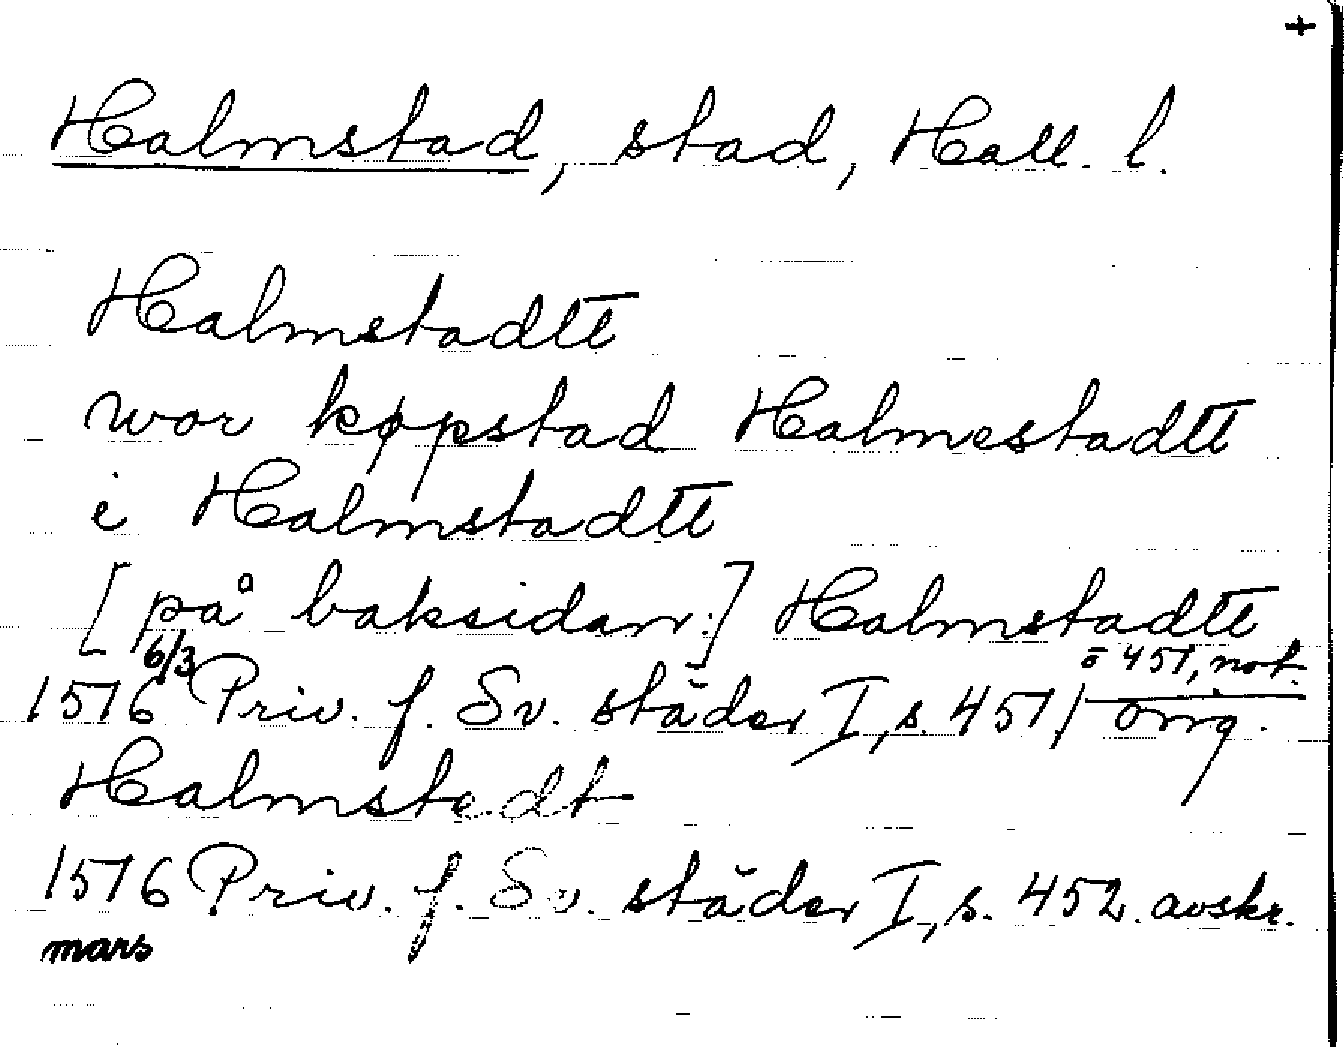 +
Halmstad, stad, Hall. l.
Halmstadtt
wor køpstad Halmestadtt
i Halmstadtt
[på baksidan:] Halmstadtt
6/3 o 451, not.
1516 Priv. f. Sv. städer I, s. 451/ orig.
Halmstedt
1516 Priv. f. Sv. städer I, s. 452. avskr.
mars